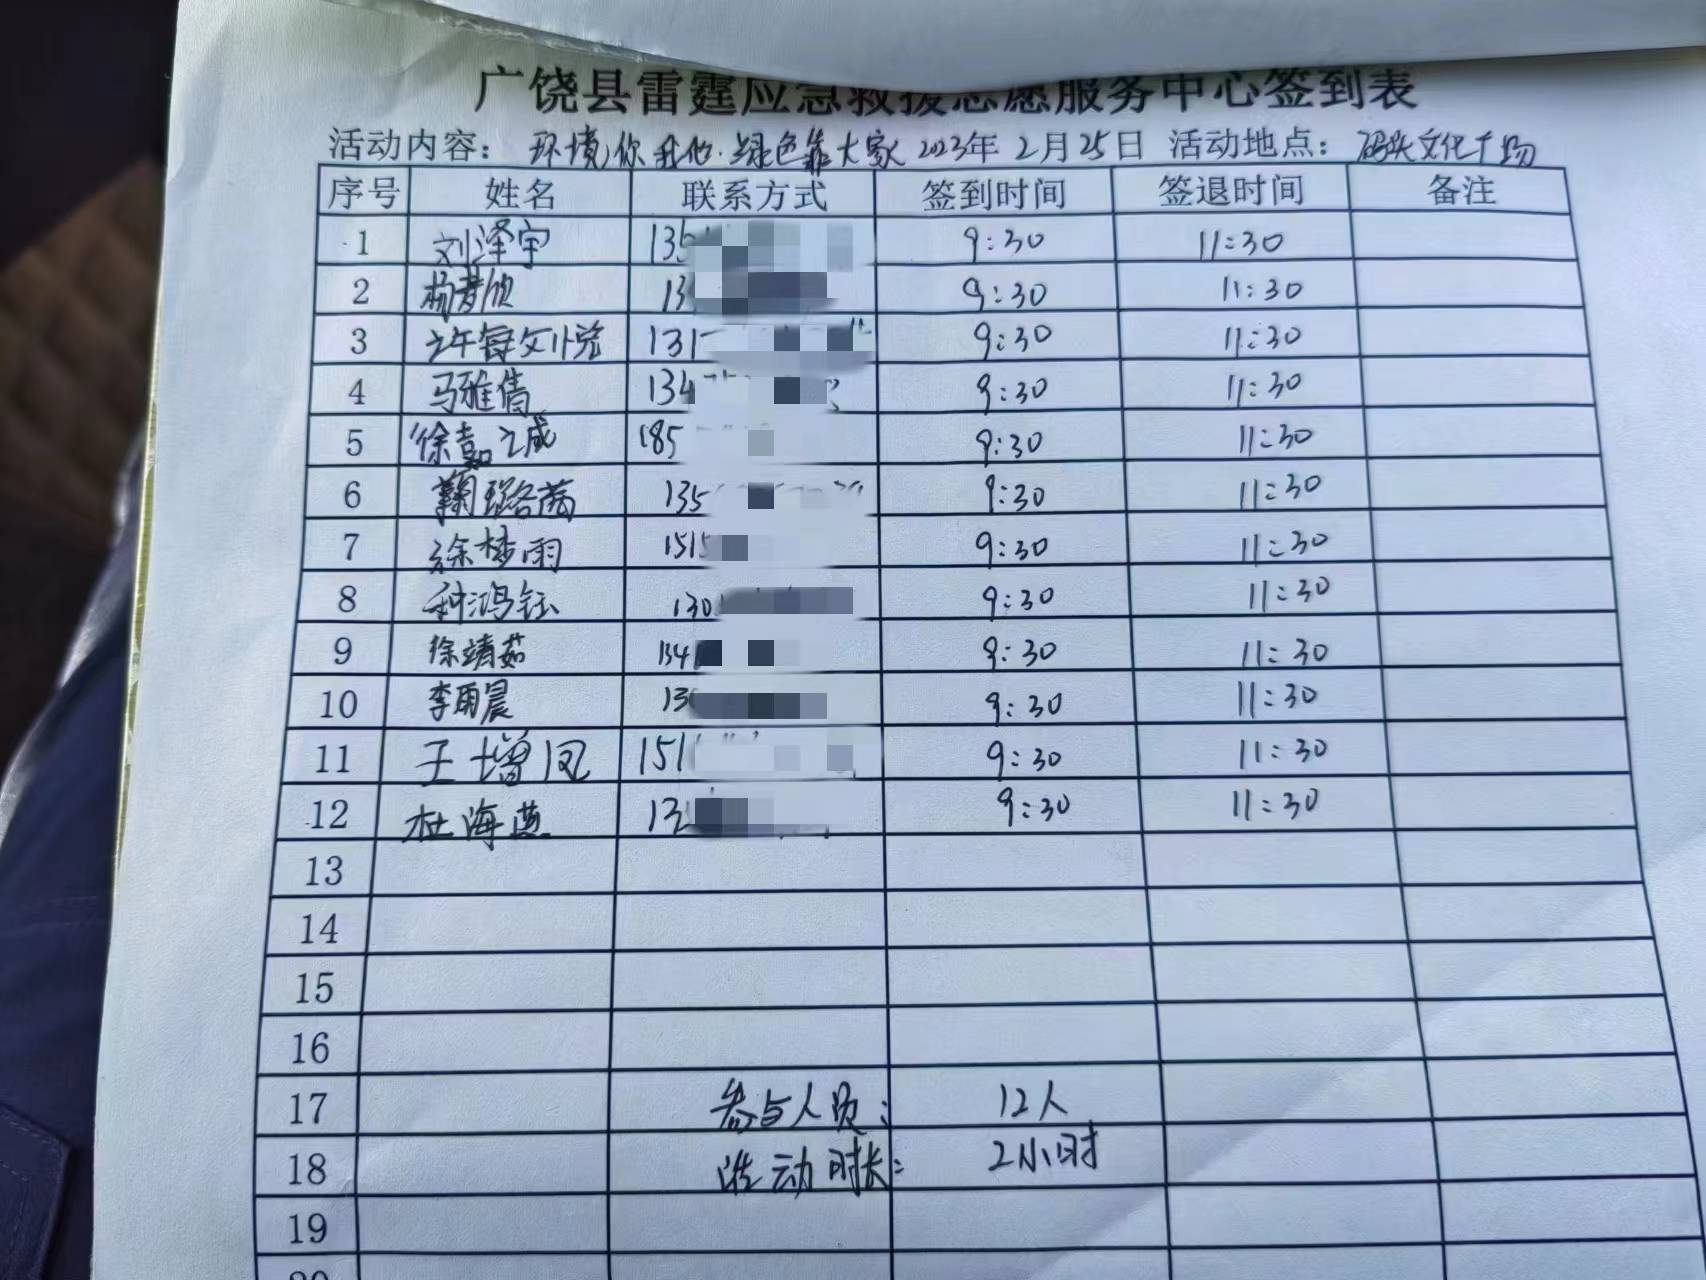 广饶县雷霆应急救援志愿服务中心签到表
活动内容: 环境你我他·绿色靠大家 2023年2月25日 活动地点: 码头文化广场
序号 姓名 联系方式 签到时间 签退时间 备注
1 刘泽宇 135 9:30 11:30
2 杨梦欣 13 9:30 11:30
3 许每文悦 131 9:30 11:30
4 马雅倩 134 9:30 11:30
5 徐嘉诚 185 9:30 11:30
6 鞠璐茜 135 9:30 11:30
7 徐梦雨 1515 9:30 11:30
8 鸿钰 130 9:30 11:30
9 徐靖茹 134 9:30 11:30
10 李雨晨 130 9:30 11:30
11 王增凤 151 9:30 11:30
12 杜海燕 13 9:30 11:30
13
14
15
16
17 参与人员: 12人
18 活动时长: 2小时
19
20